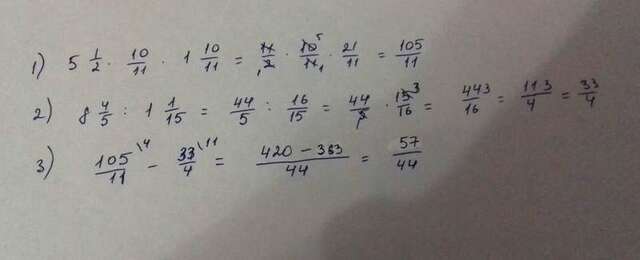 1) 5 1/2 · 10/11 · 1 10/11 = 11/2 · 10/11 · 21/11 = 105/11
2) 8 4/5 : 1 1/15 = 44/5 : 16/15 = 44/5 · 15/16 = 44·3/16 = 11·3/4 = 33/4
3) 105/11 \4 − 33/4 \11 = 420 − 363/44 = 57/44